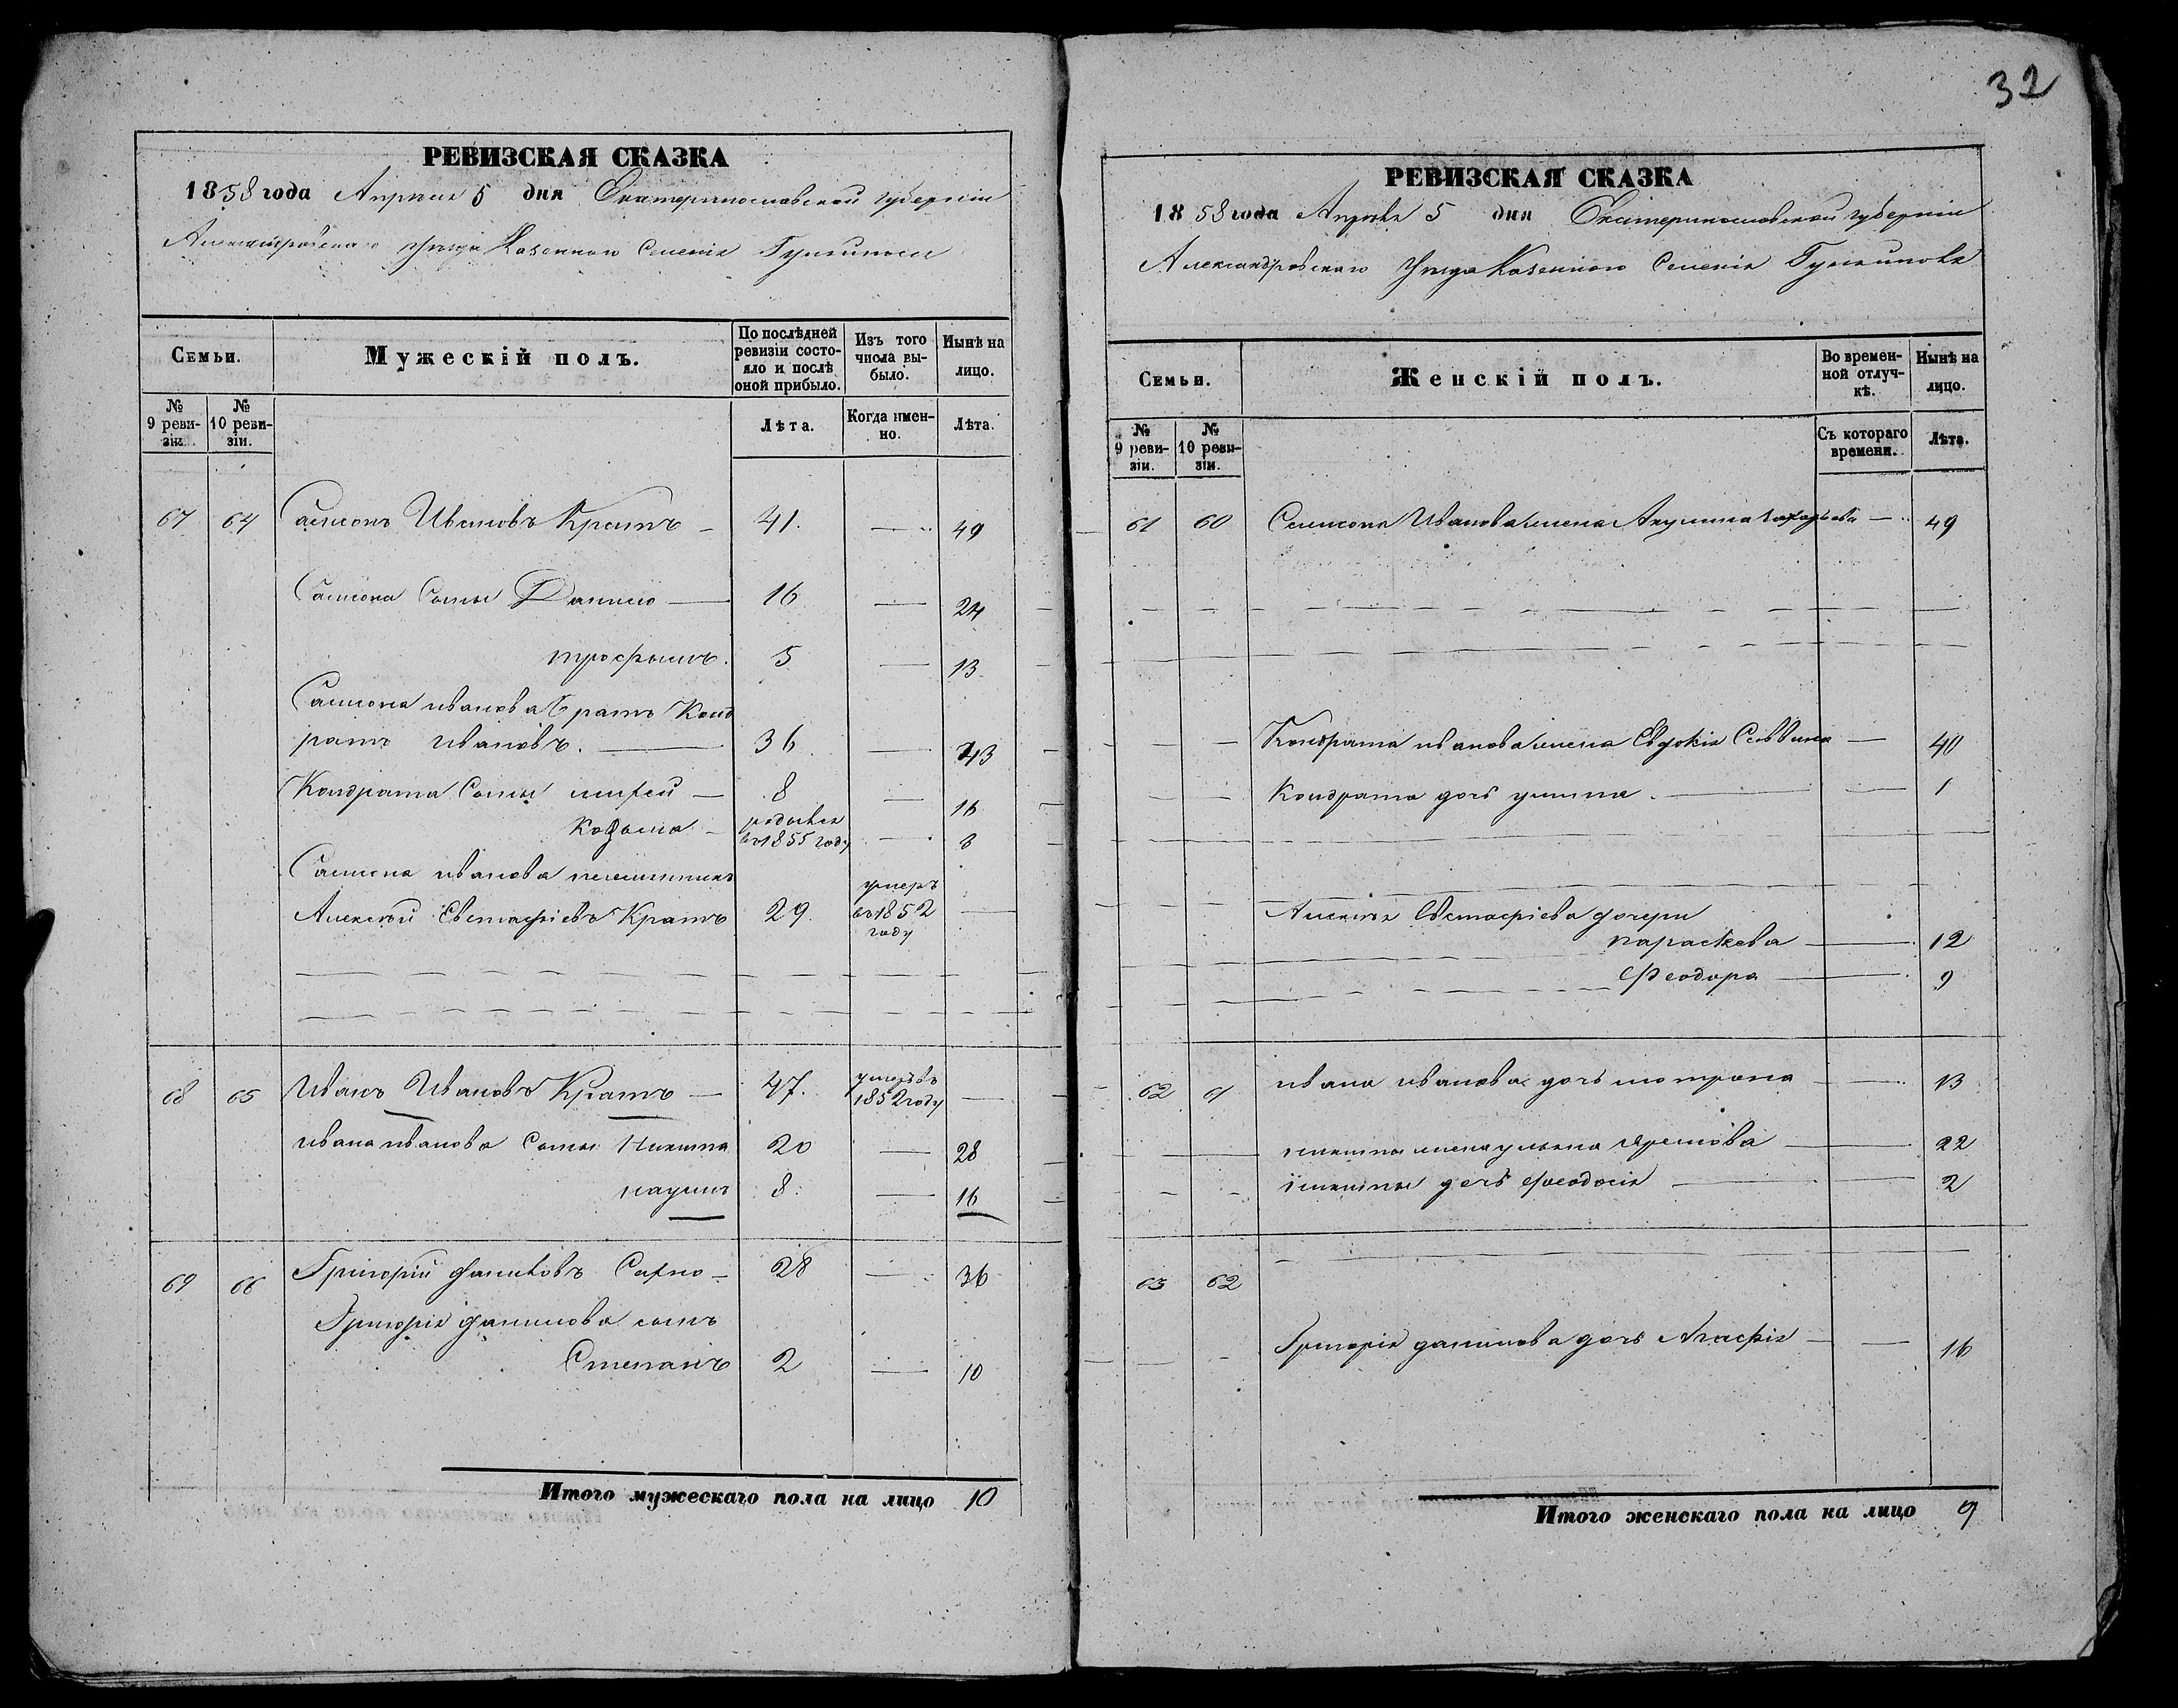 РЕВИЗСКАЯ СКАЗКА
1858 года Апреля 5 дня Екатеринославской губернiи
Александровскаго Уезда Казенного Селенiя
Семьи.
Мужескiй полъ.
По послѣдней ревизiи состояло и послѣ оной прибыло.
Изъ того числа выбыло.
Нынѣ на лицо.
№ 9 ревизiи.
№ 10 ревизiи.
Лѣта.
Когда именно.
Лѣта.
67 64 Самсонъ Ивановъ Кратъ 41. 49
Самсона Сыны Данило 16 24
трофымъ. 5 13
Самсона иванова братъ Конд
ратъ ивановъ. 36. 43
Кондрата Сыны 8 16
Козьма родился во 1855 году 3
Самсона иванова племянникъ
Алексѣй Евстафiевъ Кратъ 29. умеръ во 1852 году
68 65 Иванъ Ивановъ Кратъ 47. умеръ въ 1852 году
ивана иванова Сыны Никита 20 28
наумъ 8. 16
69 66 Григорiй даниловъ Сахно 28 36
Григорiя данилова сынъ
Степанъ 2 10
Итого мужескаго пола на лицо 10
32
РЕВИЗСКАЯ СКАЗКА
1858 года Апреля 5 дня Екатеринославской губернiи
Александровскаго Уезда Казенного Селенiя
Семьи.
Женскiй полъ.
Во временной отлучкѣ.
Нынѣ на лицо.
№ 9 ревизiи.
№ 10 ревизiи.
Съ котораго времени.
Лѣта.
61 60 Самсона Иванова жена Акулина 49
Кондрата иванова жена Евдокiя Саввина 40
Кондрата дочь 1
Алексѣя Евстафiева дочери
параскева 12
Феодора 9
62 61 ивана иванова дочь мотрона 13
никиты жена ульяна 22
никиты дочь феодосiя 2
63 62
Григорiя данилова дочь Агафiя 16
Итого женскаго пола на лицо 9